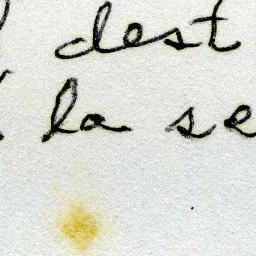 dest
la se